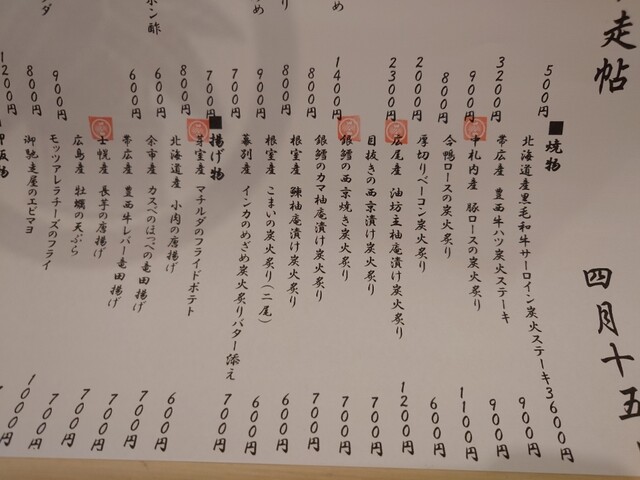 走帖
四月十五
500円
3200円
900円
800円
2000円
2300円
1400円
800円
800円
900円
700円
700円
800円
600円
600円
900円
800円
1200円
ポン酢
■焼物
北海道産黒毛和牛サーロイン炭火ステーキ3600円
帯広産 豊西牛ハツ炭火ステーキ 900円
中札内産 豚ロースの炭火炙り 900円
合鴨ロースの炭火炙り 1100円
厚切りベーコン炭火炙り 600円
広尾産 油坊主柚庵漬け炭火炙り 1200円
目抜きの西京漬け炭火炙り 700円
銀鱈の西京焼き炭火炙り 700円
銀鱈のカマ柚庵漬け炭火炙り 700円
根室産 鰊柚庵漬け炭火炙り 600円
根室産 こまいの炭火炙り(二尾) 600円
幕別産 インカのめざめ炭火炙りバター添え 700円
■揚げ物
芽室産 マチルダのフライドポテト 600円
北海道産 小肉の唐揚げ 700円
余市産 カスべのほっぺの竜田揚げ 700円
帯広産 豊西牛レバー竜田揚げ 700円
士幌産 長芋の唐揚げ 700円
広島産 牡蠣の天ぷら 700円
モッツアレラチーズのフライ
御馳走屋のエビマヨ 1000円